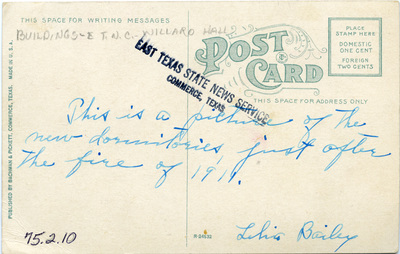 THIS SPACE FOR WRITING MESSAGES
BUILDINGS-E.T.N.C.-WILLARD HALL
POST CARD
PLACE
STAMP HERE
DOMESTIC
ONE CENT
FOREIGN
TWO CENTS
EAST TEXAS STATE NEWS SERVICE
COMMERCE, TEXAS
THIS SPACE FOR ADDRESS ONLY
This is a picture of the
new dormitories, just after
the fire of 1911.
Lelia Bailey
PUBLISHED BY BACHMAN & PICKETT, COMMERCE, TEXAS. MADE IN U. S. A.
75.2.10